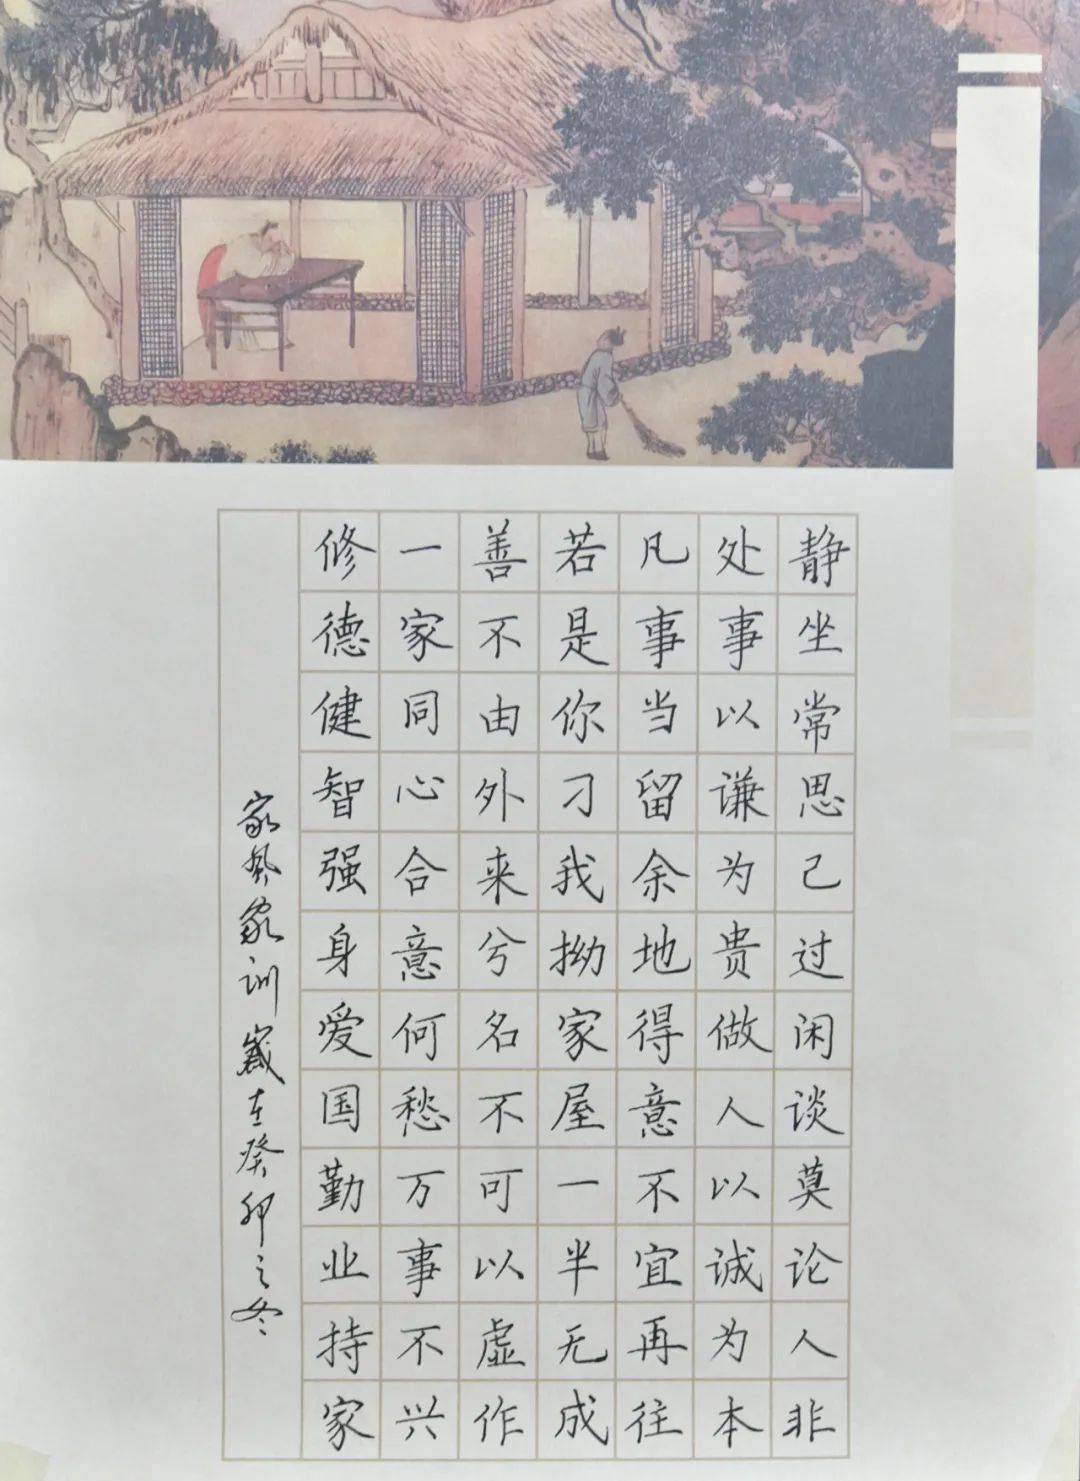 静坐常思己过闲谈莫论人非
处事以谦为贵做人以诚为本
凡事当留余地得意不宜再往
若是你刁我拗家屋一半无成
善不由外来兮名不可以虚作
一家同心合意何愁万事不兴
修德健智强身爱国勤业持家
家风家训 岁在癸卯之冬